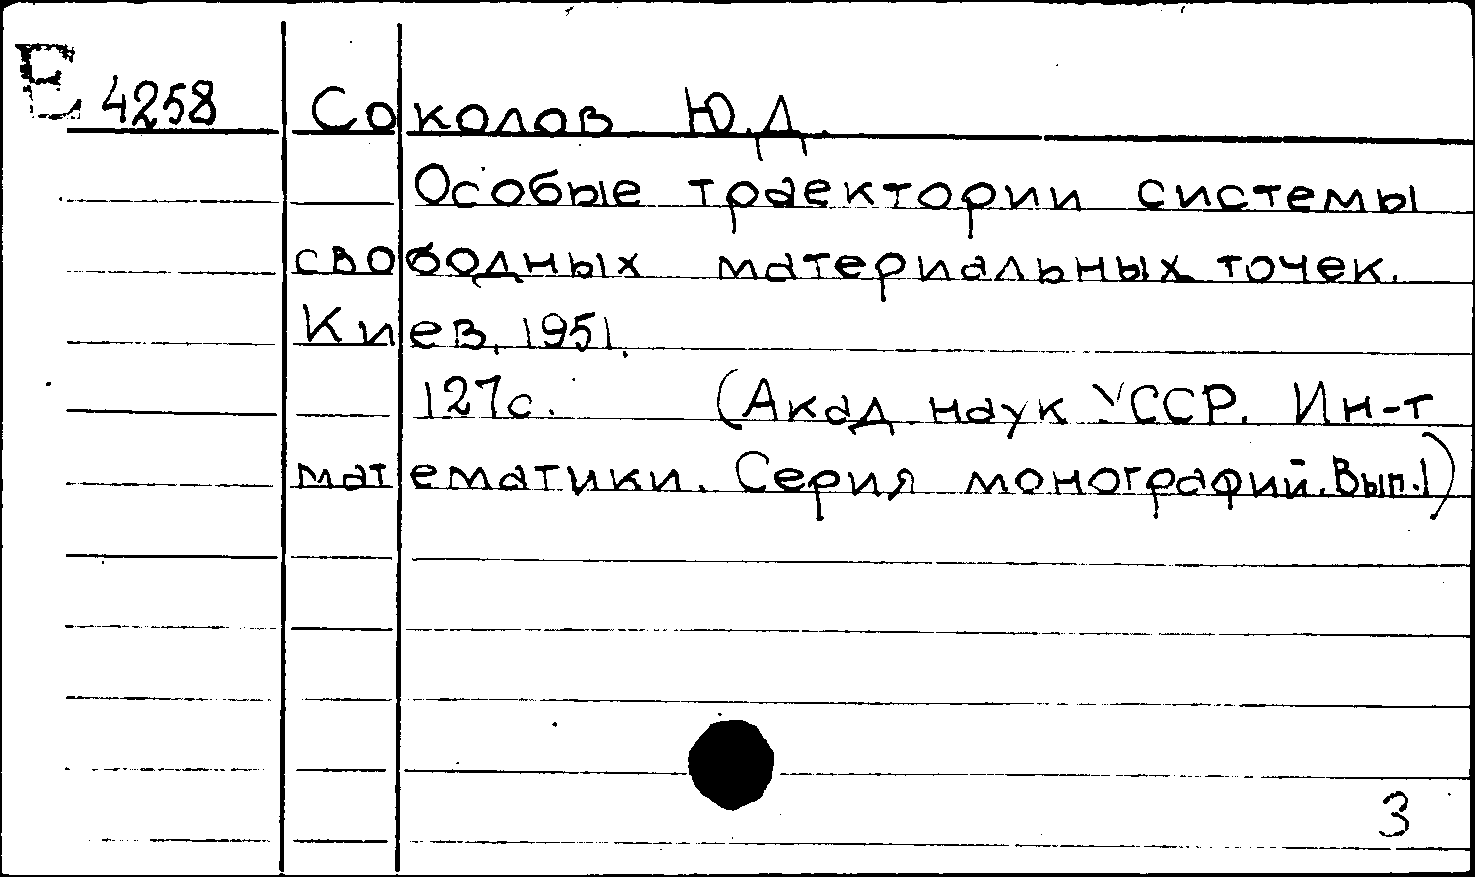 Е 4258 Соколов Ю.Д.
Особые траектории системы
свободных материальных точек.
Киев, 1951.
127с. (Акад. наук УССР. Ин-т
математики. Серия монографий. Вып.1)
3